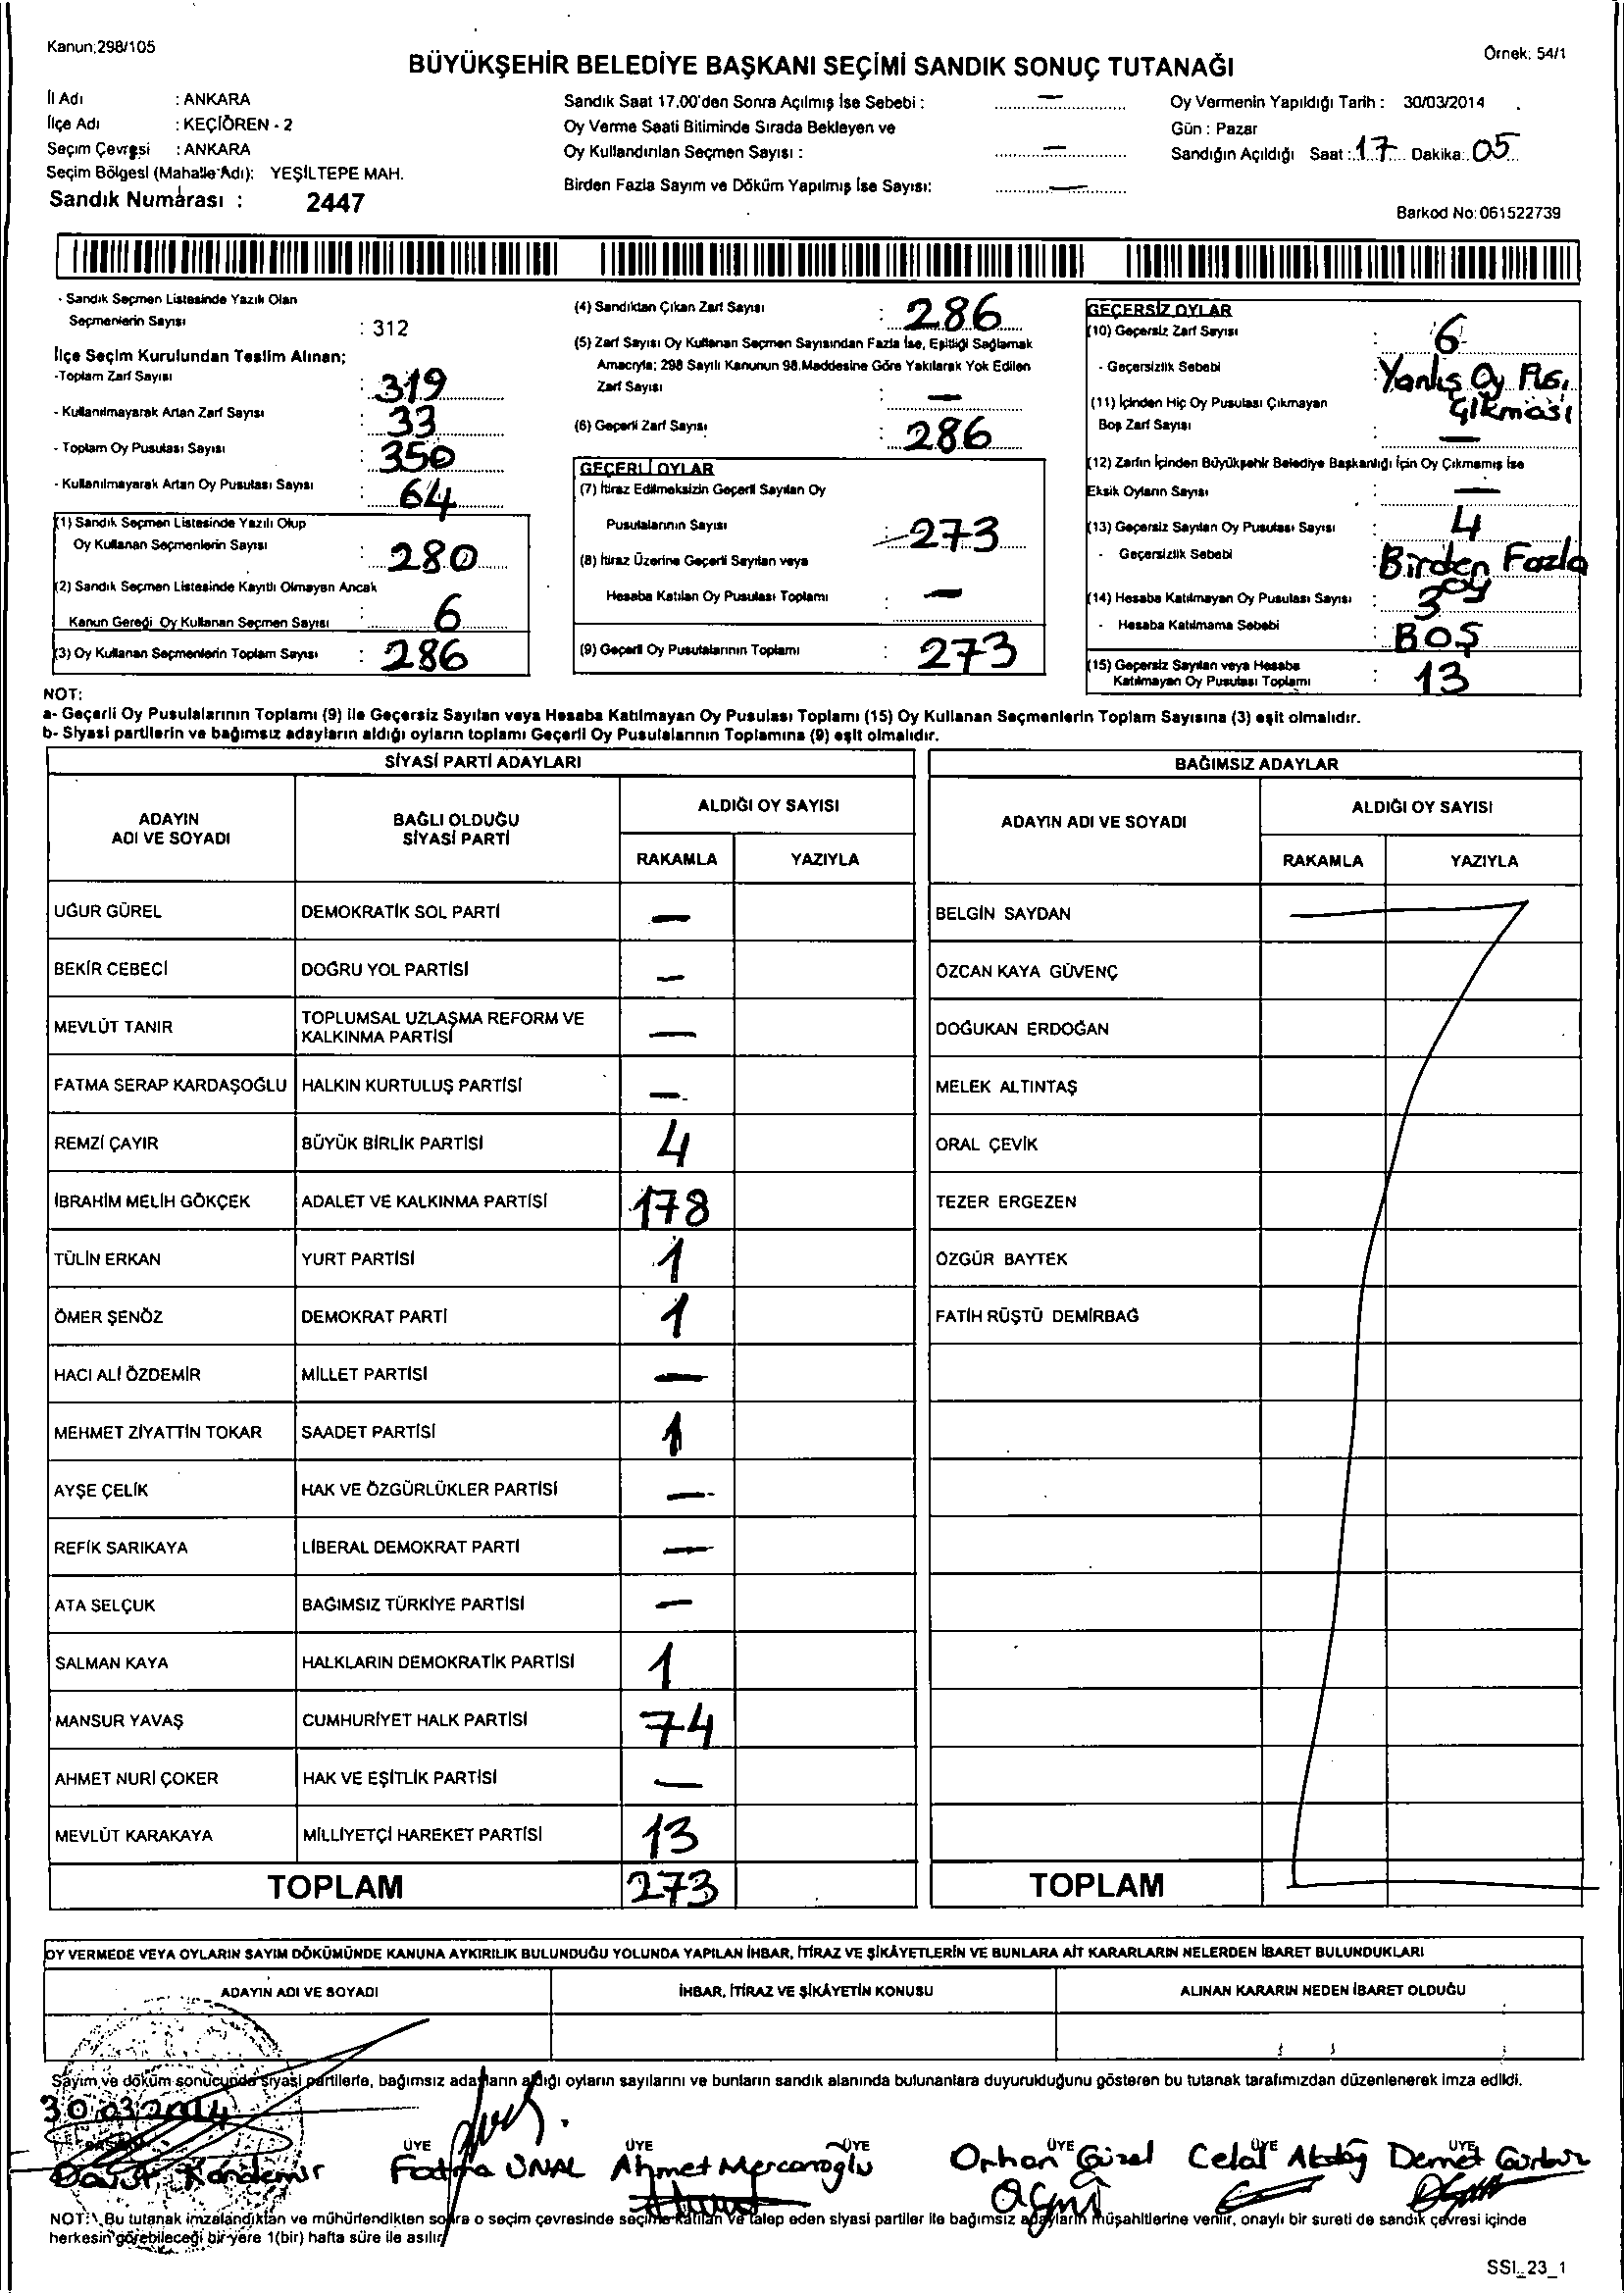 Kanun;298/105
Örnek: 54/1
BÜYÜKŞEHİR BELEDİYE BAŞKANI SEÇİMİ SANDIK SONUÇ TUTANAĞI
İl Adı : ANKARA
İlçe Adı : KEÇİÖREN - 2
Seçim Çevresi : ANKARA
Seçim Bölgesi (Mahalle Adı): YEŞİLTEPE MAH.
Sandık Numarası : 2447
Sandık Saat 17.00'den Sonra Açılmış İse Sebebi : —
Oy Verme Saati Bitiminde Sırada Bekleyen ve
Oy Kullandırılan Seçmen Sayısı : —
Birden Fazla Sayım ve Döküm Yapılmış İse Sayısı: —
Oy Vermenin Yapıldığı Tarih : 30/03/2014
Gün : Pazar
Sandığın Açıldığı Saat : 17 Dakika: 05
Barkod No: 061522739
- Sandık Seçmen Listesinde Yazılı Olan
Seçmenlerin Sayısı : 312
İlçe Seçim Kurulundan Teslim Alınan;
-Toplam Zarf Sayısı : 319
- Kullanılmayarak Artan Zarf Sayısı : 33
- Toplam Oy Pusulası Sayısı : 350
- Kullanılmayarak Artan Oy Pusulası Sayısı : 64
(1) Sandık Seçmen Listesinde Yazılı Olup
Oy Kullanan Seçmenlerin Sayısı : 280
(2) Sandık Seçmen Listesinde Kayıtlı Olmayan Ancak
Kanun Gereği Oy Kullanan Seçmen Sayısı : 6
(3) Oy Kullanan Seçmenlerin Toplam Sayısı : 286
(4) Sandıktan Çıkan Zarf Sayısı : 286
(5) Zarf Sayısı Oy Kullanan Seçmen Sayısından Fazla İse, Eşitliği Sağlamak
Amacıyla; 298 Sayılı Kanunun 98.Maddesine Göre Yakılarak Yok Edilen
Zarf Sayısı : —
(6) Geçerli Zarf Sayısı : 286
GEÇERLİ OYLAR
(7) İtiraz Edilmeksizin Geçerli Sayılan Oy
Pusulalarının Sayısı : 273
(8) İtiraz Üzerine Geçerli Sayılan veya
Hesaba Katılan Oy Pusulası Toplamı : —
(9) Geçerli Oy Pusulalarının Toplamı : 273
GEÇERSİZ OYLAR
(10) Geçersiz Zarf Sayısı : 6
- Geçersizlik Sebebi : Yanlış Oy Pus.
Çıkması
(11) İçinden Hiç Oy Pusulası Çıkmayan
Boş Zarf Sayısı : —
(12) Zarfın İçinden Büyükşehir Belediye Başkanlığı İçin Oy Çıkmamış İse
Eksik Oyların Sayısı : —
(13) Geçersiz Sayılan Oy Pusulası Sayısı : 4
- Geçersizlik Sebebi : Birden Fazla
Oy
(14) Hesaba Katılmayan Oy Pusulası Sayısı : 3
- Hesaba Katılmama Sebebi : BOŞ
(15) Geçersiz Sayılan veya Hesaba
Katılmayan Oy Pusulası Toplamı : 13
NOT:
a- Geçerli Oy Pusulalarının Toplamı (9) ile Geçersiz Sayılan veya Hesaba Katılmayan Oy Pusulası Toplamı (15) Oy Kullanan Seçmenlerin Toplam Sayısına (3) eşit olmalıdır.
b- Siyasi partilerin ve bağımsız adayların aldığı oyların toplamı Geçerli Oy Pusulalarının Toplamına (9) eşit olmalıdır.
SİYASİ PARTİ ADAYLARI
ADAYIN ADI VE SOYADI
BAĞLI OLDUĞU SİYASİ PARTİ
ALDIĞI OY SAYISI
RAKAMLA YAZIYLA
UĞUR GÜREL DEMOKRATİK SOL PARTİ —
BEKİR CEBECİ DOĞRU YOL PARTİSİ —
MEVLÜT TANIR TOPLUMSAL UZLAŞMA REFORM VE KALKINMA PARTİSİ —
FATMA SERAP KARDAŞOĞLU HALKIN KURTULUŞ PARTİSİ —
REMZİ ÇAYIR BÜYÜK BİRLİK PARTİSİ 4
İBRAHİM MELİH GÖKÇEK ADALET VE KALKINMA PARTİSİ 178
TÜLİN ERKAN YURT PARTİSİ 1
ÖMER ŞENÖZ DEMOKRAT PARTİ 1
HACI ALİ ÖZDEMİR MİLLET PARTİSİ —
MEHMET ZİYATTİN TOKAR SAADET PARTİSİ 1
AYŞE ÇELİK HAK VE ÖZGÜRLÜKLER PARTİSİ —
REFİK SARIKAYA LİBERAL DEMOKRAT PARTİ —
ATA SELÇUK BAĞIMSIZ TÜRKİYE PARTİSİ —
SALMAN KAYA HALKLARIN DEMOKRATİK PARTİSİ 1
MANSUR YAVAŞ CUMHURİYET HALK PARTİSİ 74
AHMET NURİ ÇOKER HAK VE EŞİTLİK PARTİSİ —
MEVLÜT KARAKAYA MİLLİYETÇİ HAREKET PARTİSİ 13
TOPLAM 273
BAĞIMSIZ ADAYLAR
ADAYIN ADI VE SOYADI
ALDIĞI OY SAYISI
RAKAMLA YAZIYLA
BELGİN SAYDAN
ÖZCAN KAYA GÜVENÇ
DOĞUKAN ERDOĞAN
MELEK ALTINTAŞ
ORAL ÇEVİK
TEZER ERGEZEN
ÖZGÜR BAYTEK
FATİH RÜŞTÜ DEMİRBAĞ
TOPLAM
OY VERMEDE VEYA OYLARIN SAYIM DÖKÜMÜNDE KANUNA AYKIRILIK BULUNDUĞU YOLUNDA YAPILAN İHBAR, İTİRAZ VE ŞİKÂYETLERİN VE BUNLARA AİT KARARLARIN NELERDEN İBARET BULUNDUKLARI
ADAYIN ADI VE SOYADI
İHBAR, İTİRAZ VE ŞİKÂYETİN KONUSU
ALINAN KARARIN NEDEN İBARET OLDUĞU
Sayım ve döküm sonucunda siyasi partilerle, bağımsız adayların aldığı oyların sayılarını ve bunların sandık alanında bulunanlara duyurulduğunu gösteren bu tutanak tarafımızdan düzenlenerek imza edildi.
30.03.2014
BAŞKAN ÜYE ÜYE ÜYE ÜYE ÜYE ÜYE
Kandemir Fatma ÜNAL Ahmet Mercanoğlu Orhan Güzel Celal Demet Gürbüz
NOT: Bu tutanak imzalandıktan ve mühürlendikten sonra o seçim çevresinde seçime katılan ve talep eden siyasi partiler ile bağımsız adayların müşahitlerine verilir, onaylı bir sureti de sandık çevresi içinde
herkesin görebileceği bir yere 1(bir) hafta süre ile asılır.
SSI_23_1